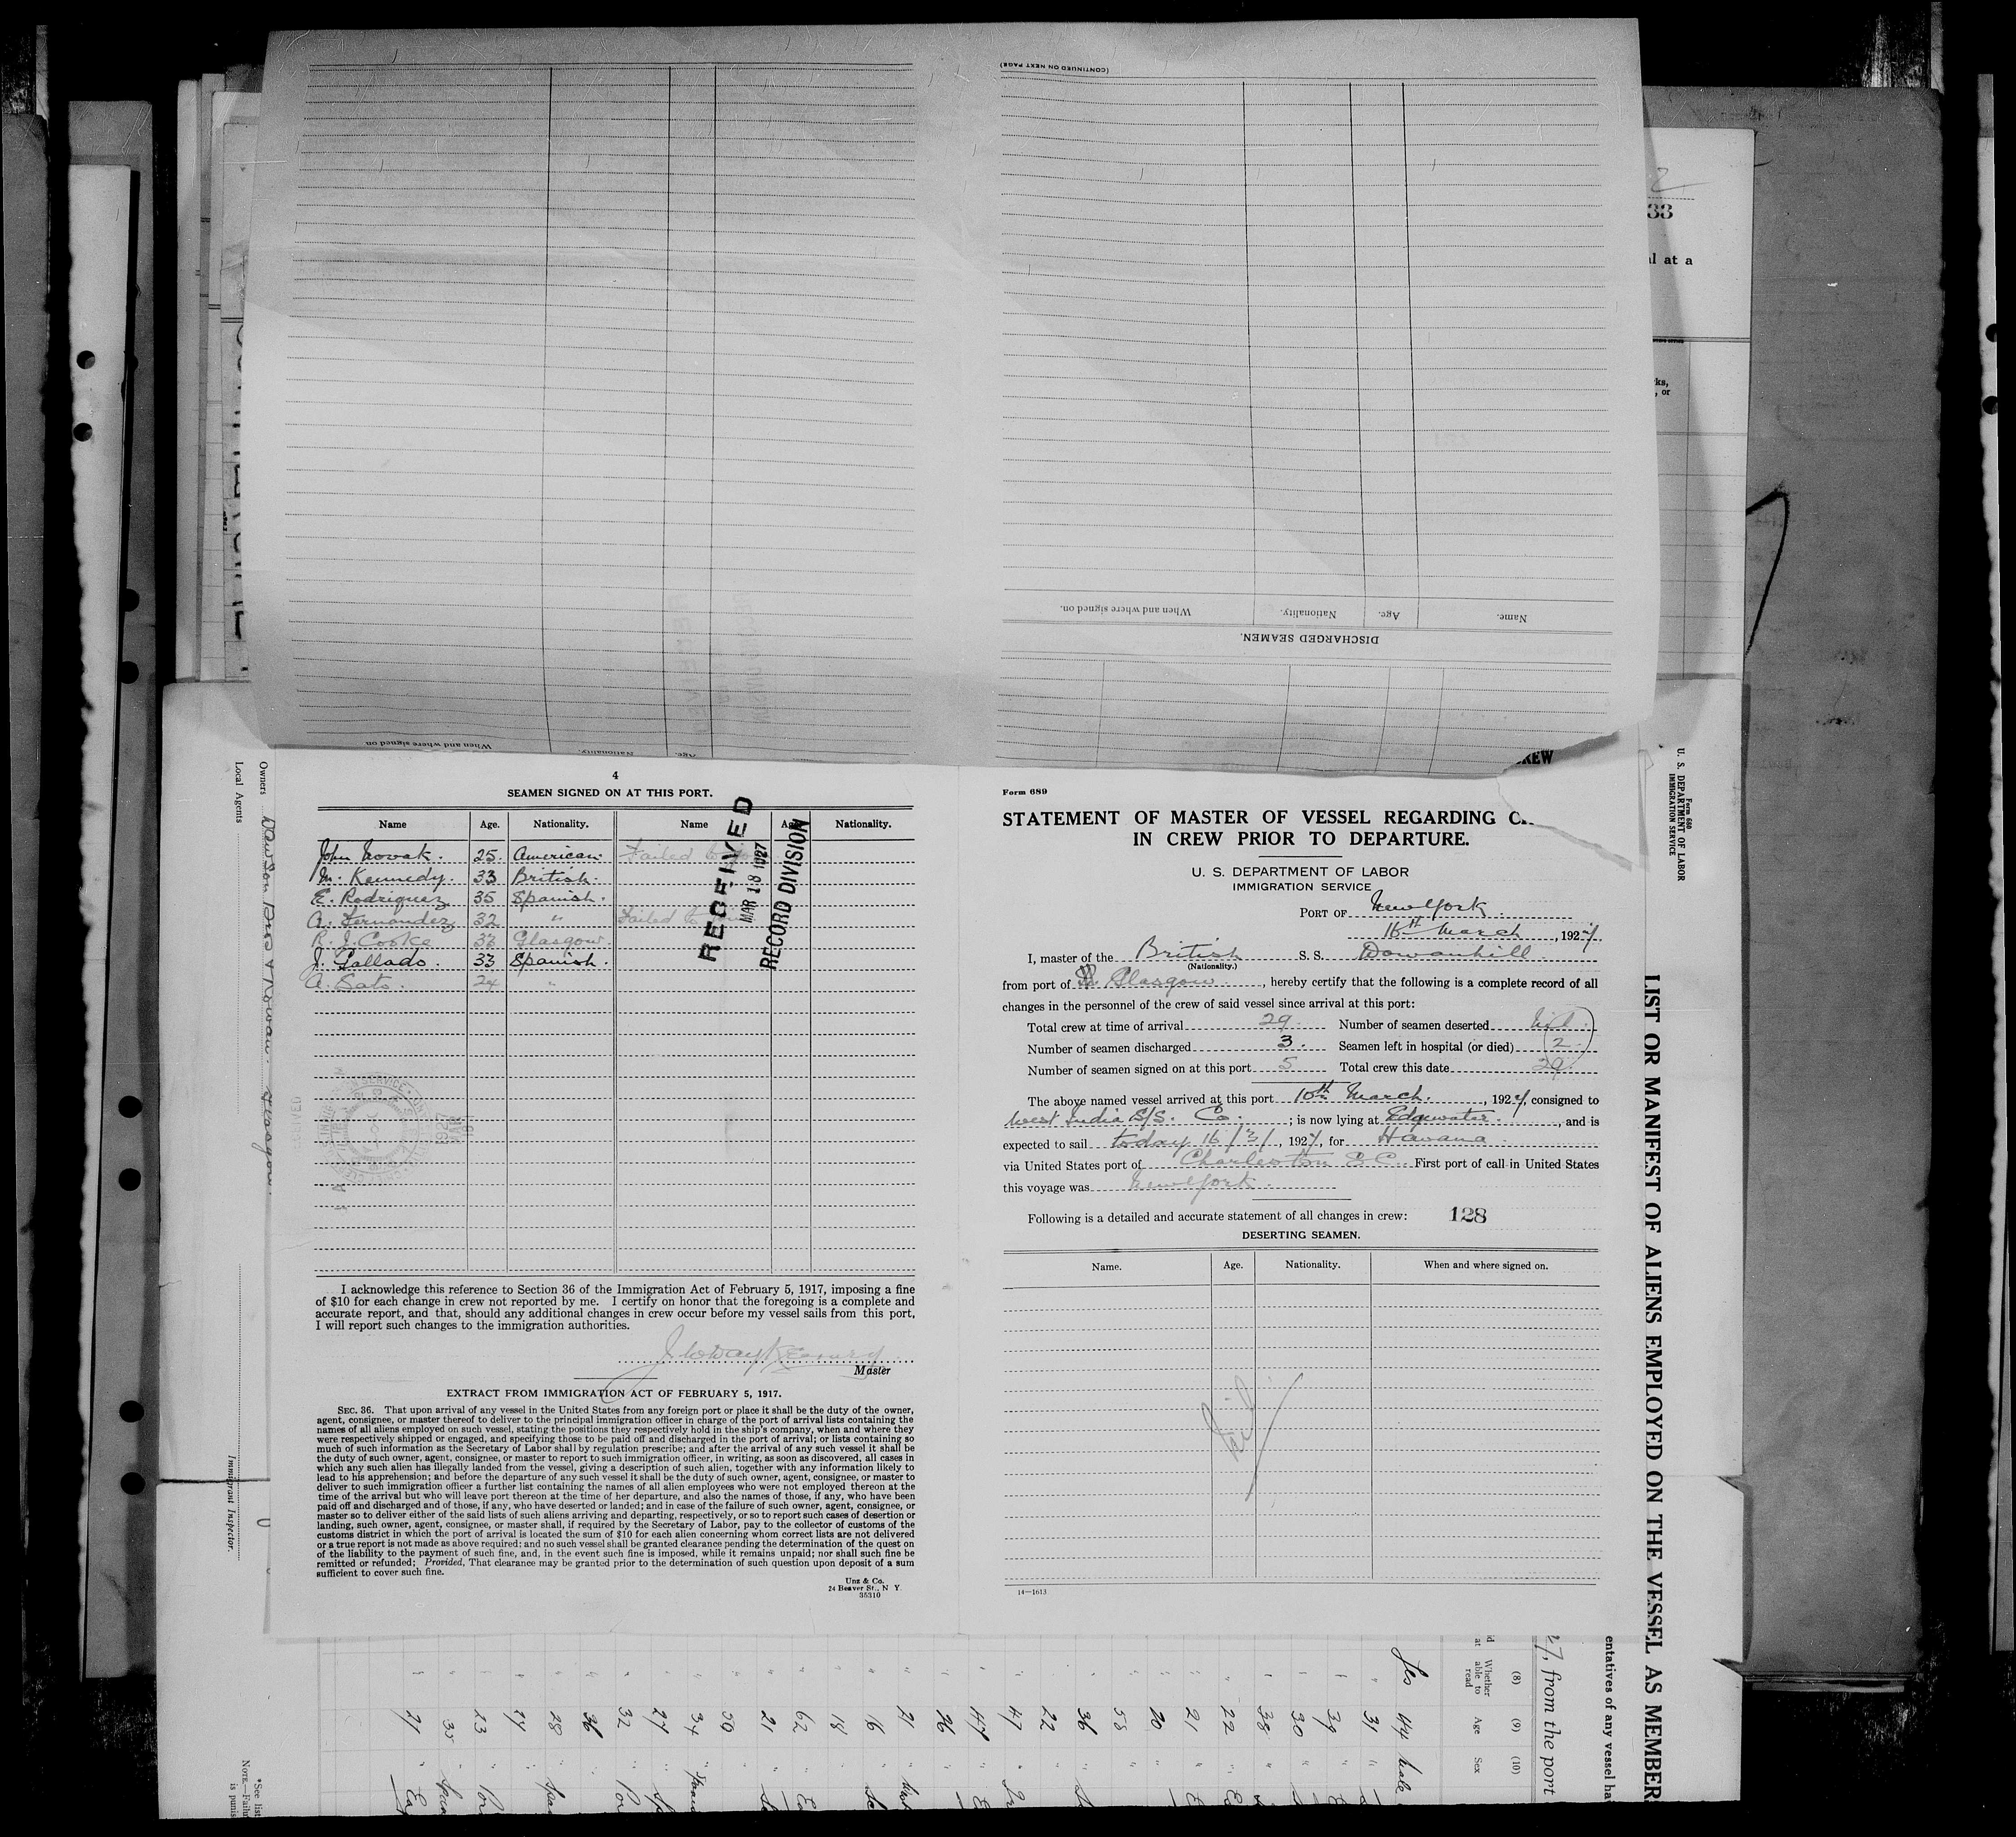 (CONTINUED ON NEXT PAGE)
When and where signed on.
Nationality.
Age.
Name.
DISCHARGED SEAMEN.
When and where signed on
Nationality.
Age.
CREW
4
SEAMEN SIGNED ON AT THIS PORT.
Name Age. Nationality. Name Age. Nationality.
John Novak. 25. American. Failed to
M. Kennedy. 33 British.
E. Rodriguez 35 Spanish.
A. Fernandez 32 " Failed to
R. J. Cooke 36 Glasgow.
J. Gallado. 33 Spanish.
A. Sato. 24 "
RECEIVED
MAR 18 1927
RECORD DIVISION
I acknowledge this reference to Section 36 of the Immigration Act of February 5, 1917, imposing a fine
of $10 for each change in crew not reported by me. I certify on honor that the foregoing is a complete and
accurate report, and that, should any additional changes in crew occur before my vessel sails from this port,
I will report such changes to the immigration authorities.
Master
EXTRACT FROM IMMIGRATION ACT OF FEBRUARY 5, 1917.
SEC. 36. That upon arrival of any vessel in the United States from any foreign port or place it shall be the duty of the owner,
agent, consignee, or master thereof to deliver to the principal immigration officer in charge of the port of arrival lists containing the
names of all aliens employed on such vessel, stating the positions they respectively hold in the ship's company, when and where they
were respectively shipped or engaged, and specifying those to be paid off and discharged in the port of arrival; or lists containing so
much of such information as the Secretary of Labor shall by regulation prescribe; and after the arrival of any such vessel it shall be
the duty of such owner, agent, consignee, or master to report to such immigration officer, in writing, as soon as discovered, all cases in
which any such alien has illegally landed from the vessel, giving a description of such alien, together with any information likely to
lead to his apprehension; and before the departure of any such vessel it shall be the duty of such owner, agent, consignee, or master to
deliver to such immigration officer a further list containing the names of all alien employees who were not employed thereon at the
time of the arrival but who will leave port thereon at the time of her departure, and also the names of those, if any, who have been
paid off and discharged and of those, if any, who have deserted or landed; and in case of the failure of such owner, agent, consignee, or
master so to deliver either of the said lists of such aliens arriving and departing, respectively, or so to report such cases of desertion or
landing, such owner, agent, consignee, or master shall, if required by the Secretary of Labor, pay to the collector of customs of the
customs district in which the port of arrival is located the sum of $10 for each alien concerning whom correct lists are not delivered
or a true report is not made as above required; and no such vessel shall be granted clearance pending the determination of the quest on
of the liability to the payment of such fine, and, in the event such fine is imposed, while it remains unpaid; nor shall such fine be
remitted or refunded; Provided, That clearance may be granted prior to the determination of such question upon deposit of a sum
sufficient to cover such fine.
Unz & Co.
24 Beaver St., N Y.
35310
Form 689
STATEMENT OF MASTER OF VESSEL REGARDING
IN CREW PRIOR TO DEPARTURE.
U. S. DEPARTMENT OF LABOR
IMMIGRATION SERVICE
PORT OF New York.
16th March, 1927
I, master of the British S. S. Dowanhill
(Nationality.)
from port of Glasgow, hereby certify that the following is a complete record of all
changes in the personnel of the crew of said vessel since arrival at this port:
Total crew at time of arrival 29. Number of seamen deserted nil.
Number of seamen discharged 3. Seamen left in hospital (or died) (2)
Number of seamen signed on at this port 5 Total crew this date 29.
The above named vessel arrived at this port 10th March., 1927, consigned to
West India S/S. Co.; is now lying at Edgewater., and is
expected to sail today 16/3/, 1927, for Havana
via United States port of Charleston S.C. First port of call in United States
this voyage was New York.
Following is a detailed and accurate statement of all changes in crew: 128
DESERTING SEAMEN.
Name. Age. Nationality. When and where signed on.
Nil
14—1613
Owners
Local Agents
Immigrant Inspector.
*See list
NOTE.—Failu
is punis
Form 680
U. S. DEPARTMENT OF LABOR
IMMIGRATION SERVICE
LIST OR MANIFEST OF ALIENS EMPLOYED ON THE VESSEL AS MEMBER
entatives of any vessel ha
27, from the port
(8) (9) (10)
Whether able to read
Age
Sex
yes 44 male
33
al at a
ks,
, or